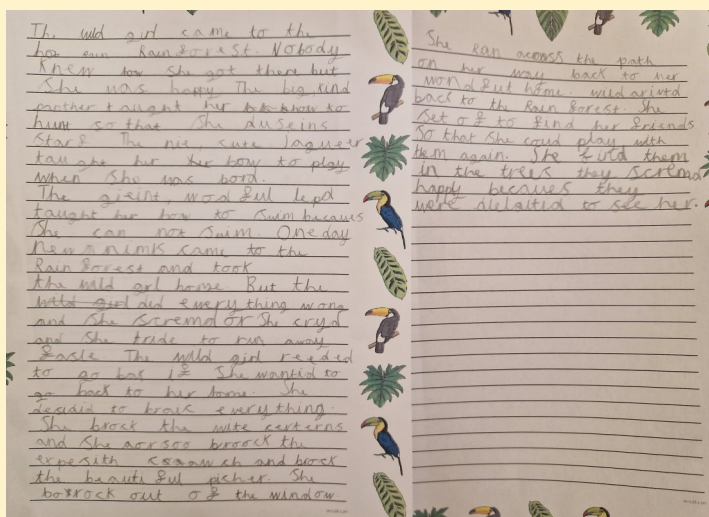 The wild girl came to the
hot rain Rainforest. Nobody
Knew how she got there but
She was happy The big, kind
panther taught her how to
hunt so that She
starf The nic, cute Jaguer
taught her her how to play
when She was bord.
The gieint, wodful lepd
taught her how to Swim becaues
She can not Swim. One day
new animls came to the
Rainforest and took
the wild girl home. But the
wild girl did everything wong
and She scremd or She cryd
and She tride to run away
The wild girl needed
to go bak if She wanted to
go back to her home. She
decidid to braik everything.
She brock the wite certerns
and She aorsoo broock the
and brock
the beautiful picher. She
out of the window
She ran across the path
on her way back to her
wondfut home. wild arivtd
back to the Rain forest. She
Set of to find her friends
So that She coud play with
them again. She fuld them
in the trees they scremd
happy becaues they
were dielaitid to see her.